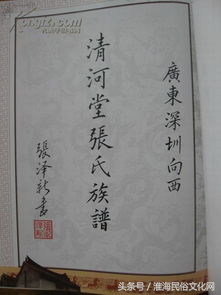 廣東深圳向西
清河堂張氏族譜
張泽新書
头条号/淮海民俗文化网